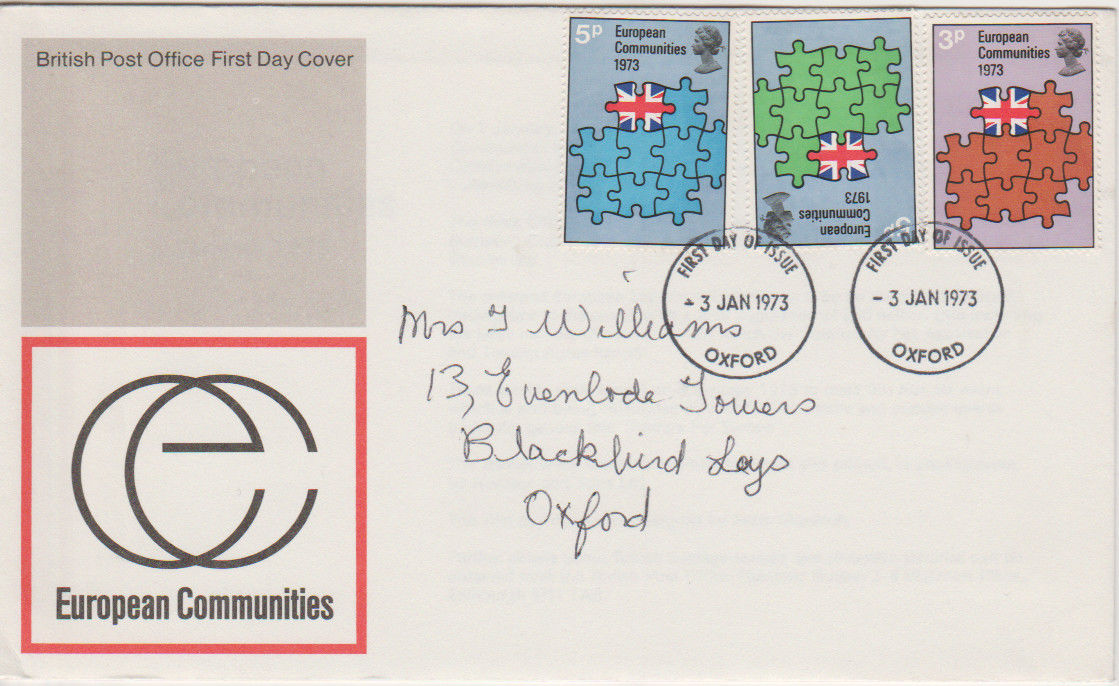 British Post Office First Day Cover
5p
European
Communities
1973
European
Communities
1973
3p
European
Communities
1973
FIRST DAY OF ISSUE
3 JAN 1973
OXFORD
FIRST DAY OF ISSUE
- 3 JAN 1973
OXFORD
Mrs J Williams
13, Evenlode Towers
Blackbird Leys
Oxford
ec
European Communities